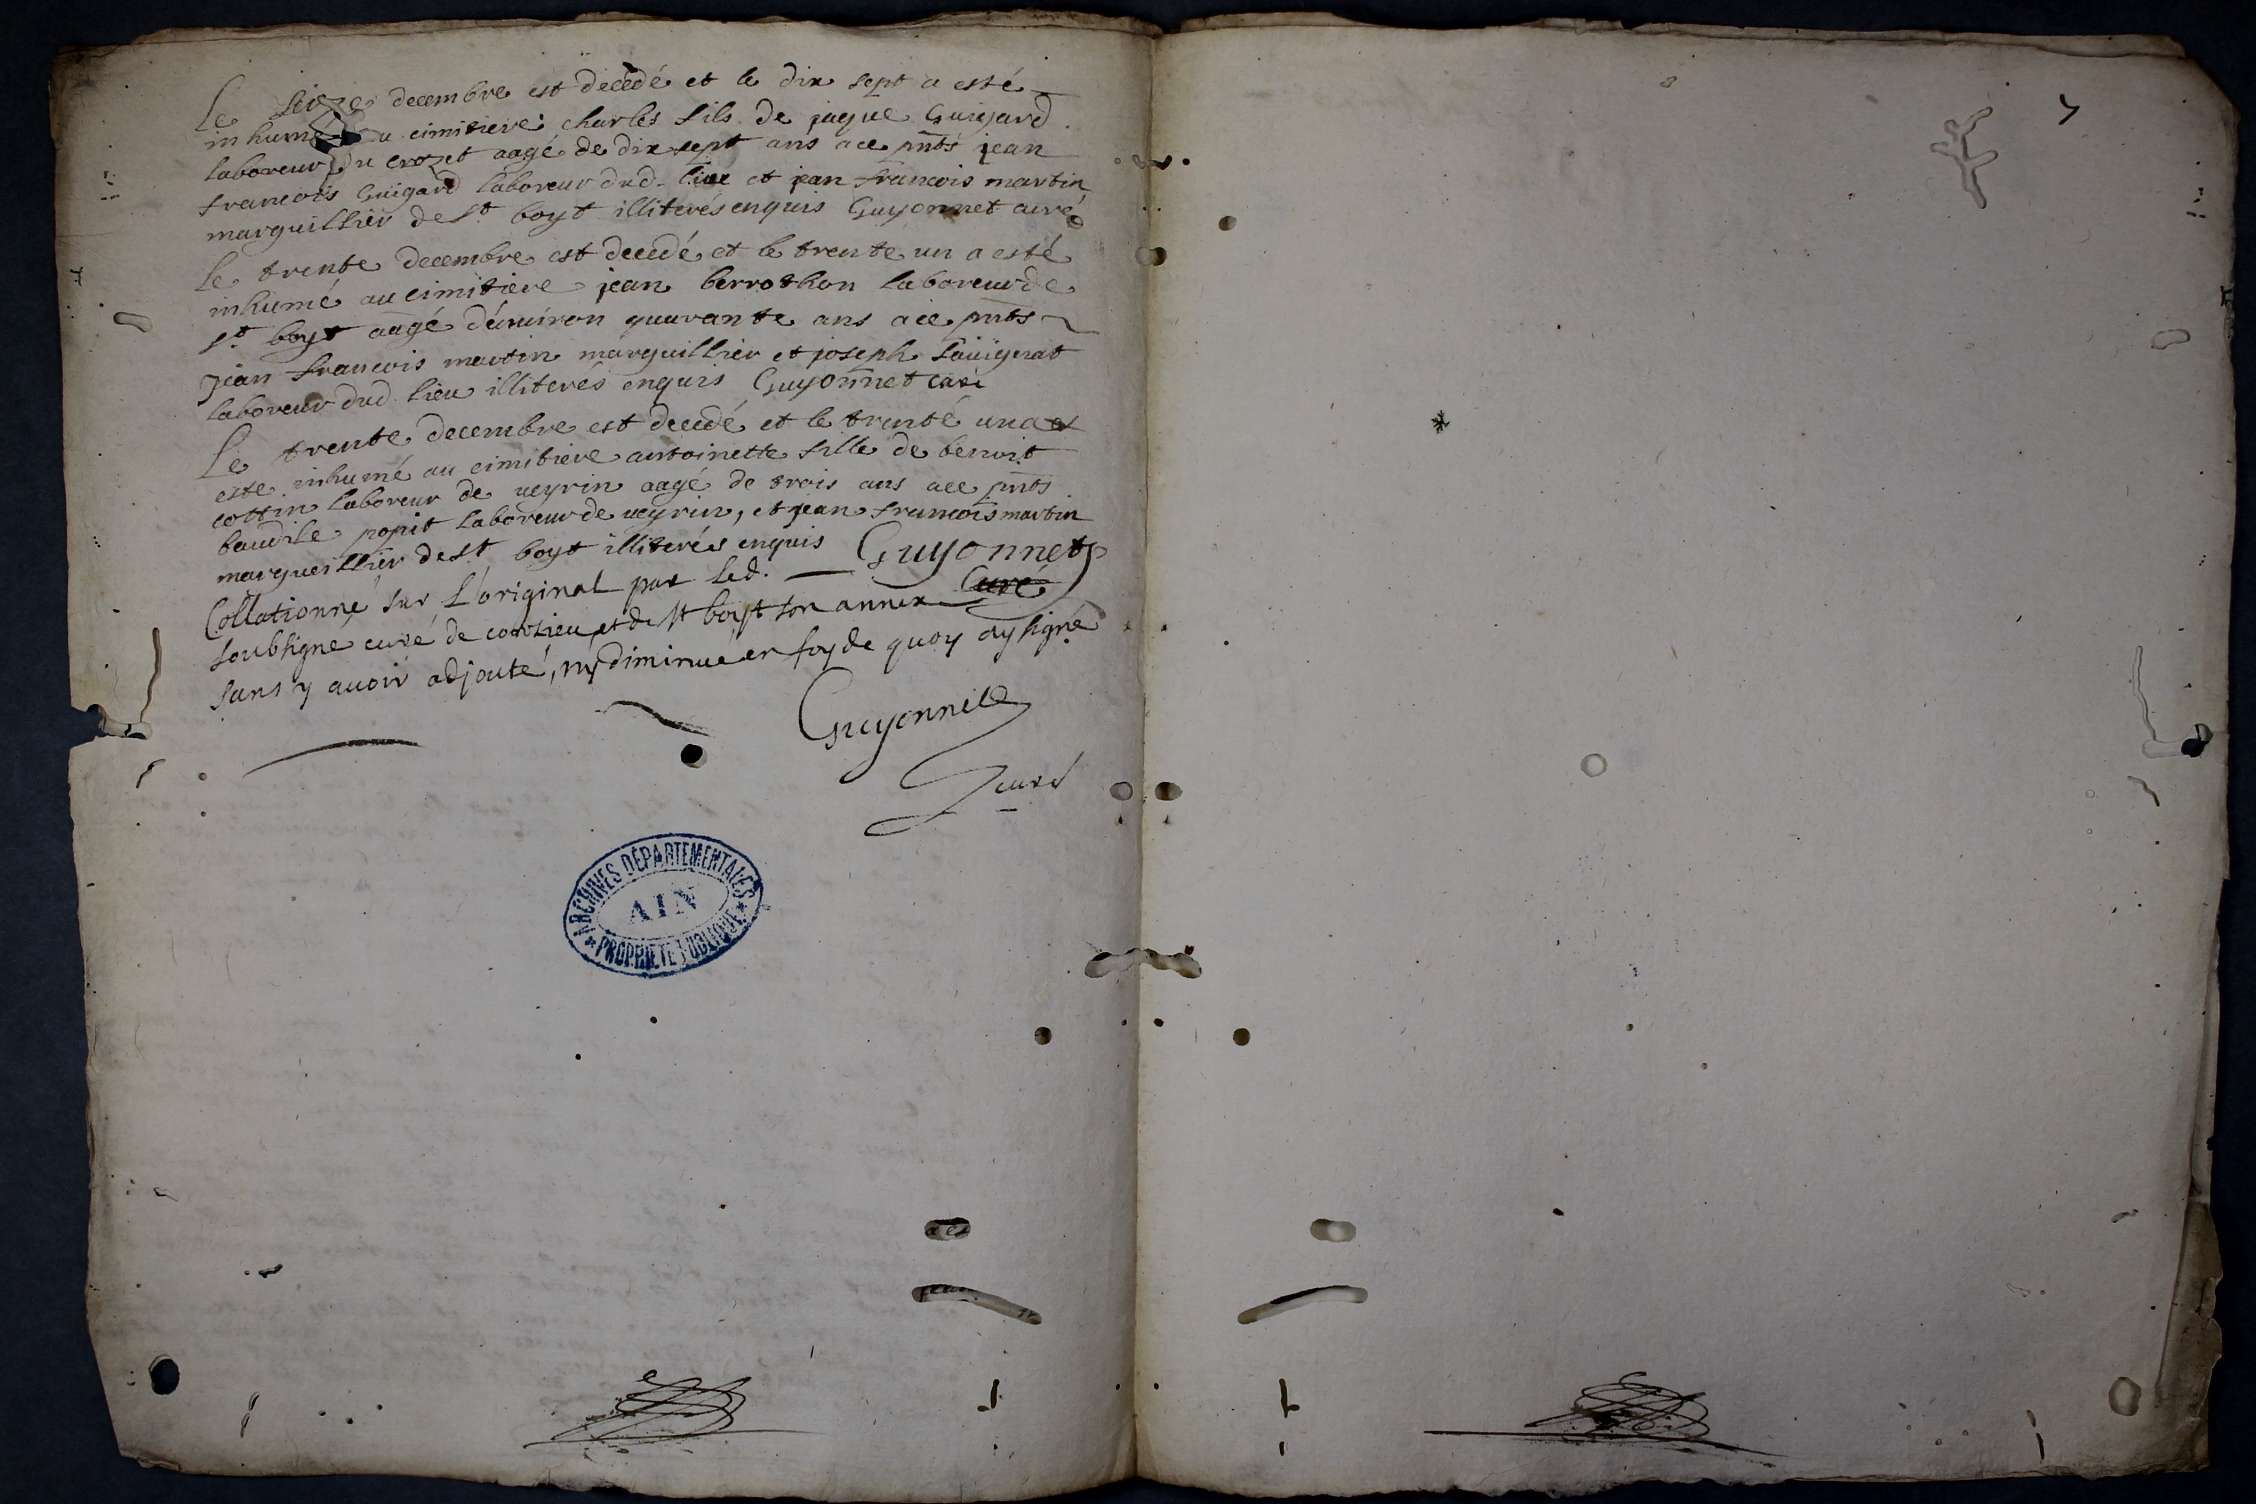 Le seize decembre est decedé et le dix sept a esté
inhumé au cimitiere charles fils de jaque Guigard
laboreur du crozet aagé de dix sept ans a ce pnts jean
francois Guigard laboreur dud. lieu et jean francois martin
marguillier de st boyt illiterés enquis Guyonnet curé
le trente decembre est decedé et le trente un a esté
inhumé au cimitiere jean berrothon laboreur de
st boyt aagé d'environ quarante ans a ce pnts
jean francois martin marguillier et joseph
laboreur dud. lieu illiterés enquis Guyonnet curé
Le trente decembre est decedé et le trente un a
esté inhumé au cimitiere antoinette fille de benoit
cottin laboreur de veyrin aagé de trois ans a ce pnts
baudile popit laboreur de veyrin, et jean francois martin
margueillier de st boyt illiterés enquis Guyonnet
Curé
Collationné sur l'original par led.
soubsigne curé de et de st boyt son annex
sans y avoir adjouté, ny diminue en foy de quoy ay signé
Guyonnet
curé
ARCHIVES DÉPARTEMENTALES
AIN
* PROPRIÉTÉ PUBLIQUE *
7